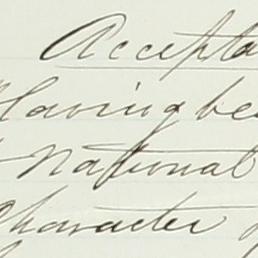 Accepta
Having be
National
Character of